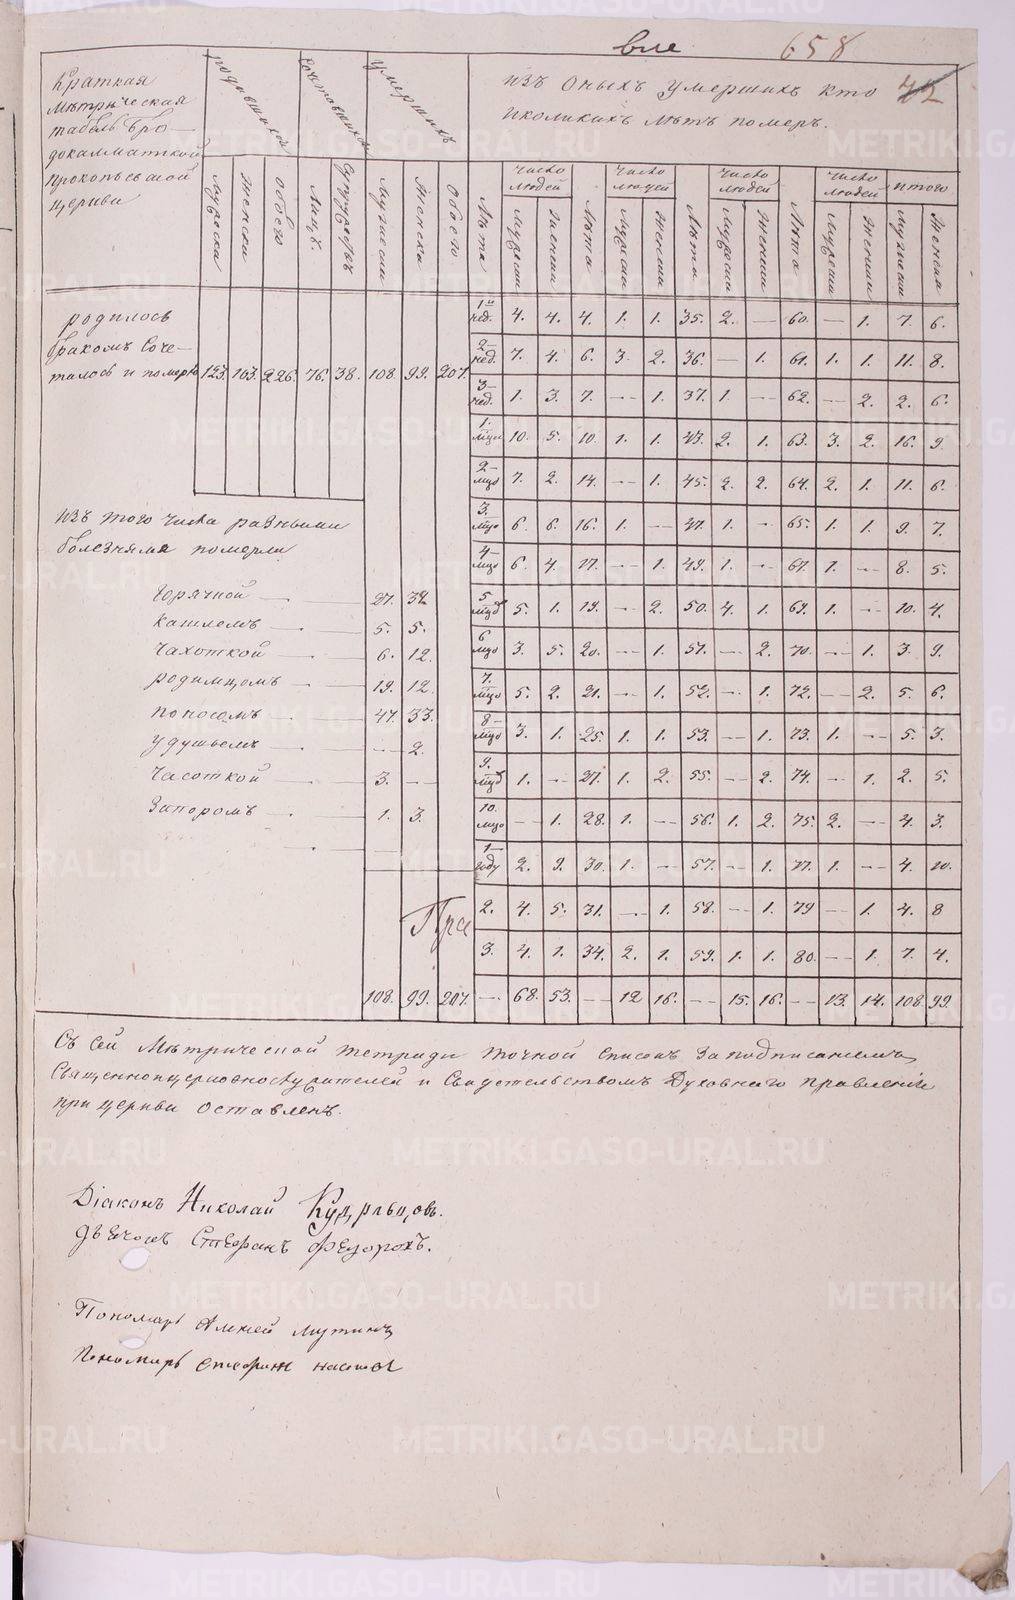 вле 658
42
Краткая
Мѣтрическая
табѣль Бро-
докалматской
Прокопьевской
церкви
родившихся сочетавшихся умершихъ
изъ оныхъ умершихъ кто
иколикихъ лѣтъ померъ.
Мужеска Женска обоего Лицъ. Супружествъ Мужеска Женска Обоего
Лѣта число людей Лѣта число людей Лѣта число людей Лѣта число людей итого
Мужеска Женска Мужеска Женска Мужеска Женска Мужеска Женска Мужеска Женска
родилось
бракомъ соче-
талось и померло 123. 103. 226. 76. 38. 108. 99. 207.
1 нед. 4. 4. 4. 1. 1. 35. 2. — 60. — 1. 7. 6.
2 нед. 7. 4. 6. 3. 2. 36. — 1. 61. 1. 1. 11. 8.
3 нед. 1. 3. 7. — 1. 37. 1. — 62. — 2. 2. 6.
1. мцъ 10. 5. 10. 1. 1. 43. 2. 1. 63. 3. 2. 16. 9.
2 мцо 7. 2. 14. — 1. 45. 2. 2. 64. 2. 1. 11. 6.
3. мцо 6. 6. 16. 1. — 47. 1. — 65. 1. 1. 9. 7.
4 мцо 6. 4. 17. — 1. 49. 1. — 67. 1. — 8. 5.
5 мцо 5. 1. 19. — 2. 50. 4. 1. 69. 1. — 10. 4.
6 мцо 3. 5. 20. — 1. 51. — 2. 70. — 1. 3. 9.
7. мцо 5. 2. 21. — 1. 52. — 1. 72. — 2. 5. 6.
8 мцо 3. 1. 25. 1. 1. 53. — 1. 73. 1. — 5. 3.
9. мцо 1. — 27. 1. 2. 55. — 2. 74. — 1. 2. 5.
10. мцо — 1. 28. 1. — 56. 1. 2. 75. 2. — 4. 3.
1 году 2. 9. 30. 1. — 57. — 1. 77. 1. — 4. 10.
2. 4. 5. 31. — 1. 58. — 1. 79 — 1. 4. 8
3. 4. 1. 34. 2. 1. 59. 1. 1. 80. — 1. 7. 4.
изъ того числа разными
болезнями померли
горячкой — 27. 32.
кашлемъ — 5. 5.
чахоткой — 6. 12.
родимцомъ — 19. 12.
поносомъ — 47. 33.
удушьемъ — — 2.
Часоткой — 3. —
Запоромъ — 1. 3.
Пра
108. 99. 207. — 68. 53. — 12 16. — 15. 16. — 13. 14. 108. 99.
Съ сей Мѣтрической тетради точной списокъ заподписаниемъ
Священноцерковнослужителей и Свидетельствомъ Духовнаго правления
при церкви оставленъ.
Діаконъ Николай Кудрявцовъ.
дьячокъ Стефанъ Федоровъ.
Пономарь Алексей
Пономарь
METRIKI.GASO-URAL.RU